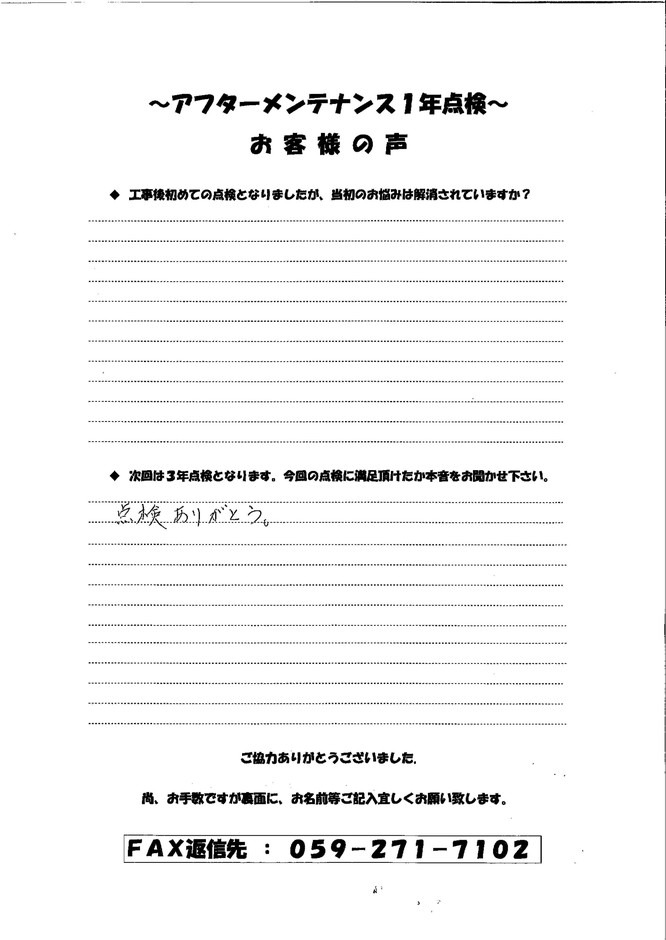 ～アフターメンテナンス１年点検～
お客様の声
◆ 工事後初めての点検となりましたが、当初のお悩みは解消されていますか？
◆ 次回は３年点検となります。今回の点検に満足頂けたか本音をお聞かせ下さい。
点検ありがとう。
ご協力ありがとうございました。
尚、お手数ですが裏面に、お名前等ご記入宜しくお願い致します。
ＦＡＸ返信先 ： ０５９－２７１－７１０２